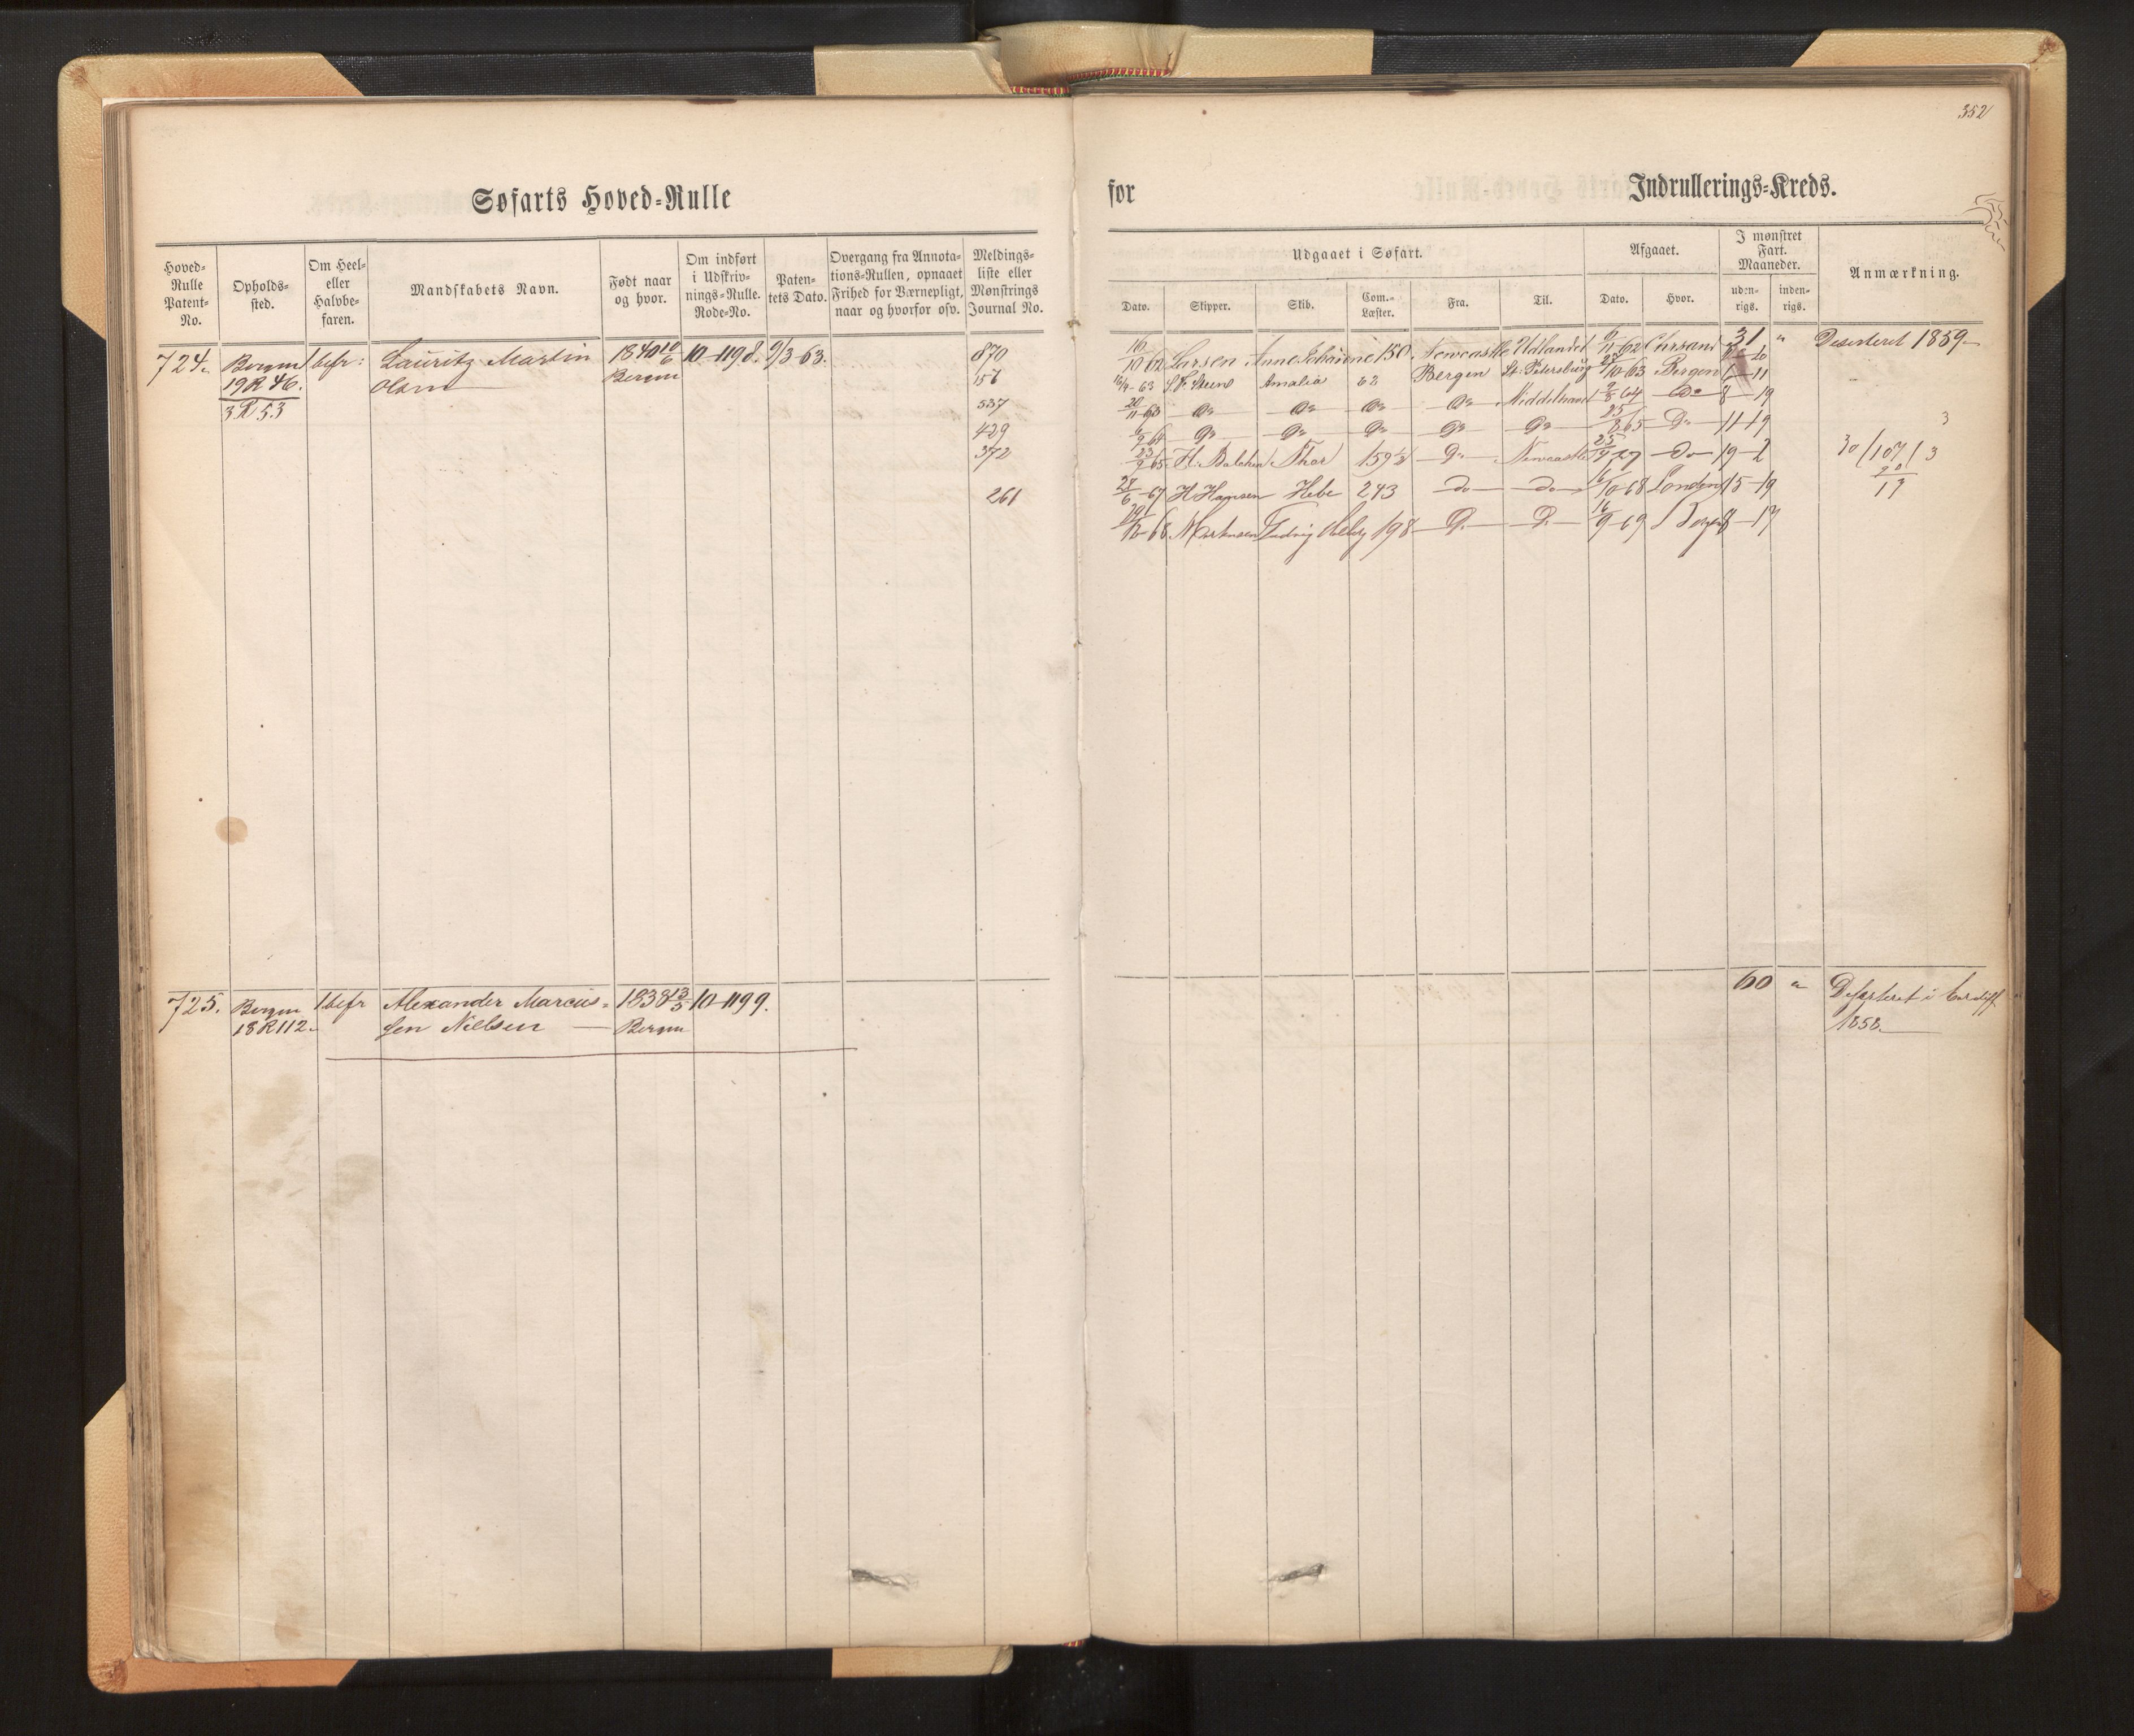 352
Søfarts Hoved-Rulle
for Indrullerings-Kreds.
Hoved-Rulle Patent-No.
Opholds-sted.
Om Heel- eller Halvbe-faren.
Mandskabets Navn.
Født naar og hvor.
Om indført i Udskriv-nings-Rulle. Rode-No.
Paten-tets Dato.
Overgang fra Annota-tions-Rullen, opnaaet Frihed for Værnepligt, naar og hvorfor osv.
Meldings-liste eller Mønstrings Journal No.
Udgaaet i Søfart.
Afgaaet.
I mønstret Fart. Maaneder.
Anmærkning.
Dato.
Skipper.
Skib.
Com.-Læster.
Fra.
Til.
Dato.
Hvor.
uden-rigs.
inden-rigs.
724. Bergen 1 befr: Lauritz Martin 1840 10/6 10-1198. 9/3-63. 870
19R46. Olsen Bergen 157
3R53 537
429
372
261
16/10 62 Larsen 150. Newcastle Udlandet 62 Chrsand 31 " Deserteret 1859
16/9-63 Amalia 62 Bergen St. Petersburg 10-63 Bergen 1-11
20/11-63 Do Do Do Do Middelhavet 64 do 8-19
Do Do Do Do Do 65 Do 11-19 3
23/9 65 Thor 159 1/2 Do Newcastle do 19-2 30/107/3
28/6-67 H Hansen Hebe 243 do do 16/10-68 London 15-19 90
17
68 Ludvig Holberg 198 D. D. 16/9-69 8-17
725. Bergen 1 befr Alexander Marcus= 1838 13/5 10-1199. 60 " Deserteret i Cardiff
18R112. sen Nielsen Bergen 1858.